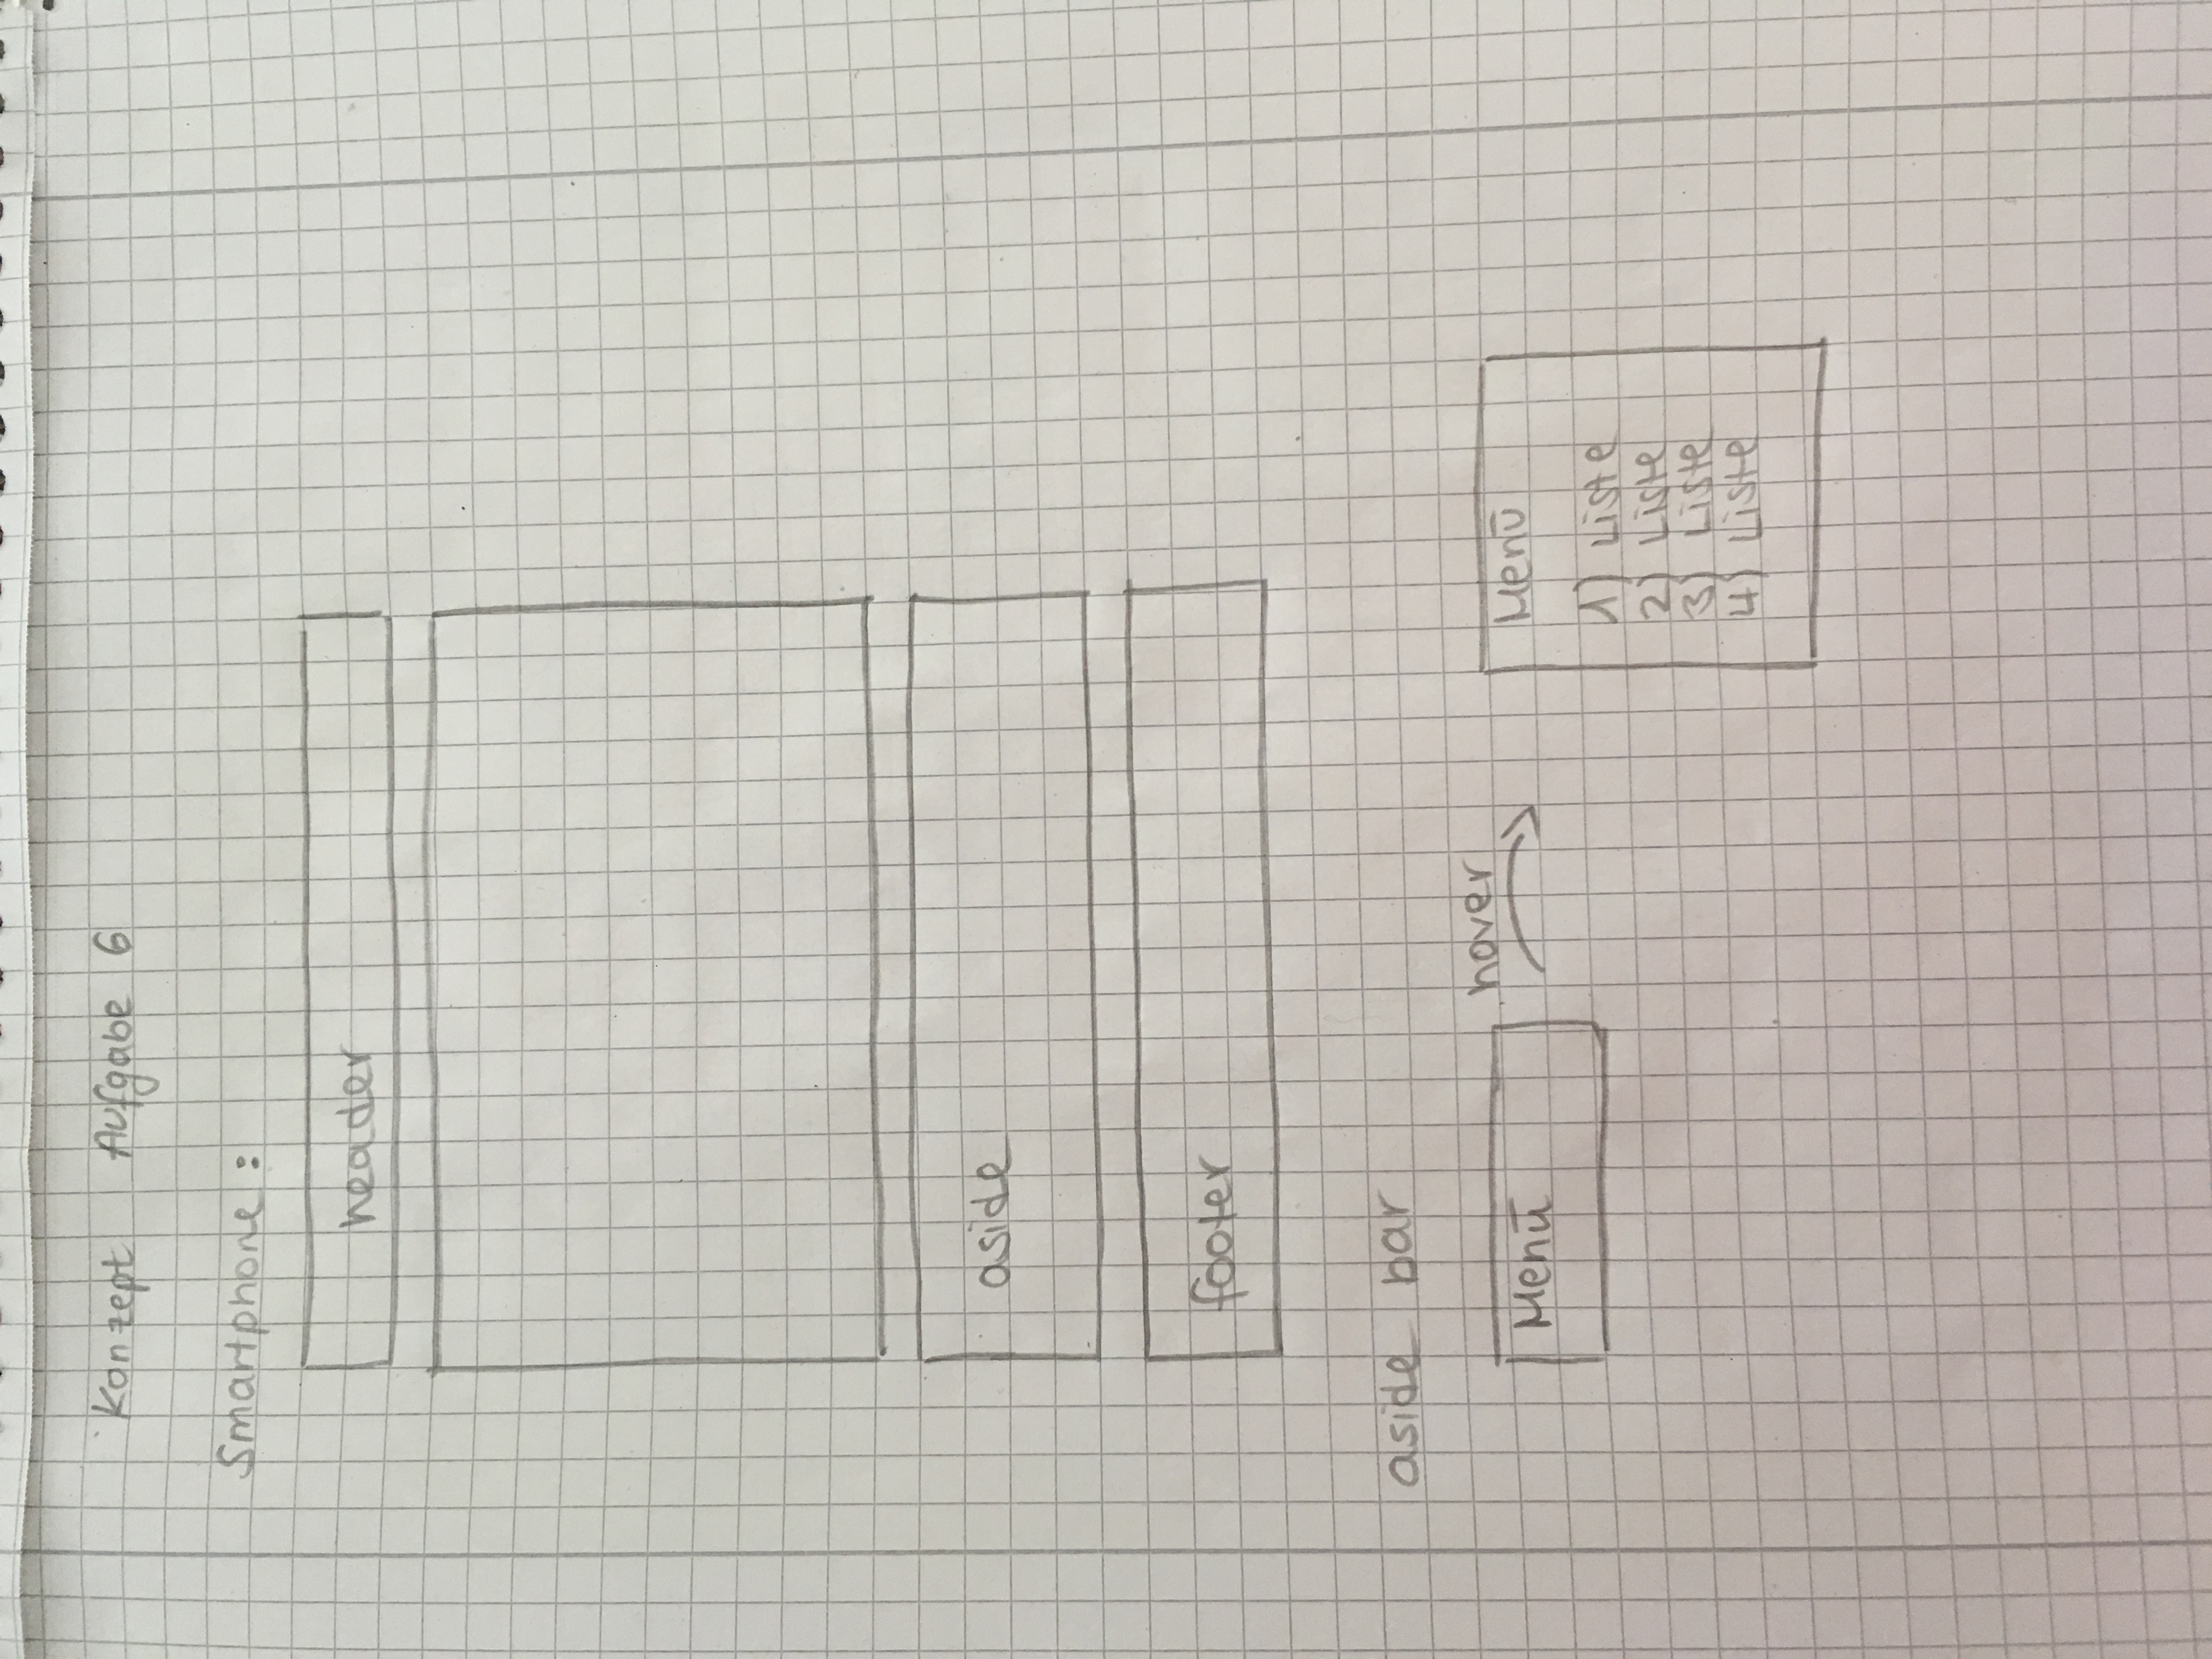 Konzept Aufgabe 6
Smartphone:
header
aside
footer
aside bar
Menü
hover
Menü
1) Liste
2) Liste
3) Liste
4) Liste